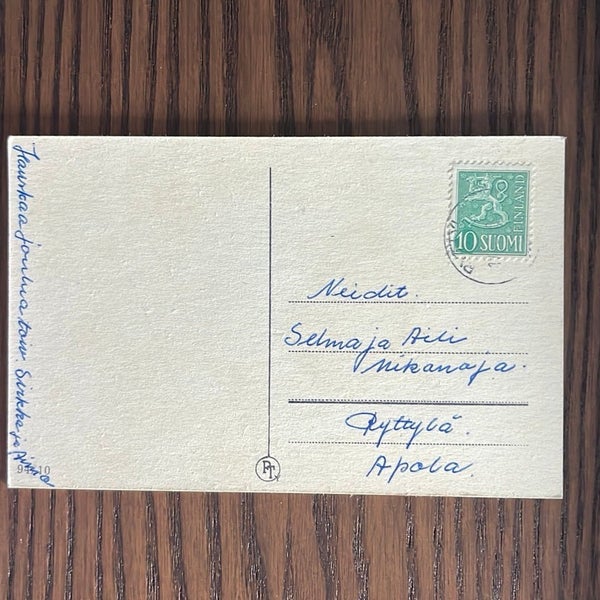 Hauskaa joulua toiv. Sirkka ja
10 SUOMI
FINLAND
Neidit.
Selma ja Aili
Nikanaja.
Ryttylä.
Apola.
PT